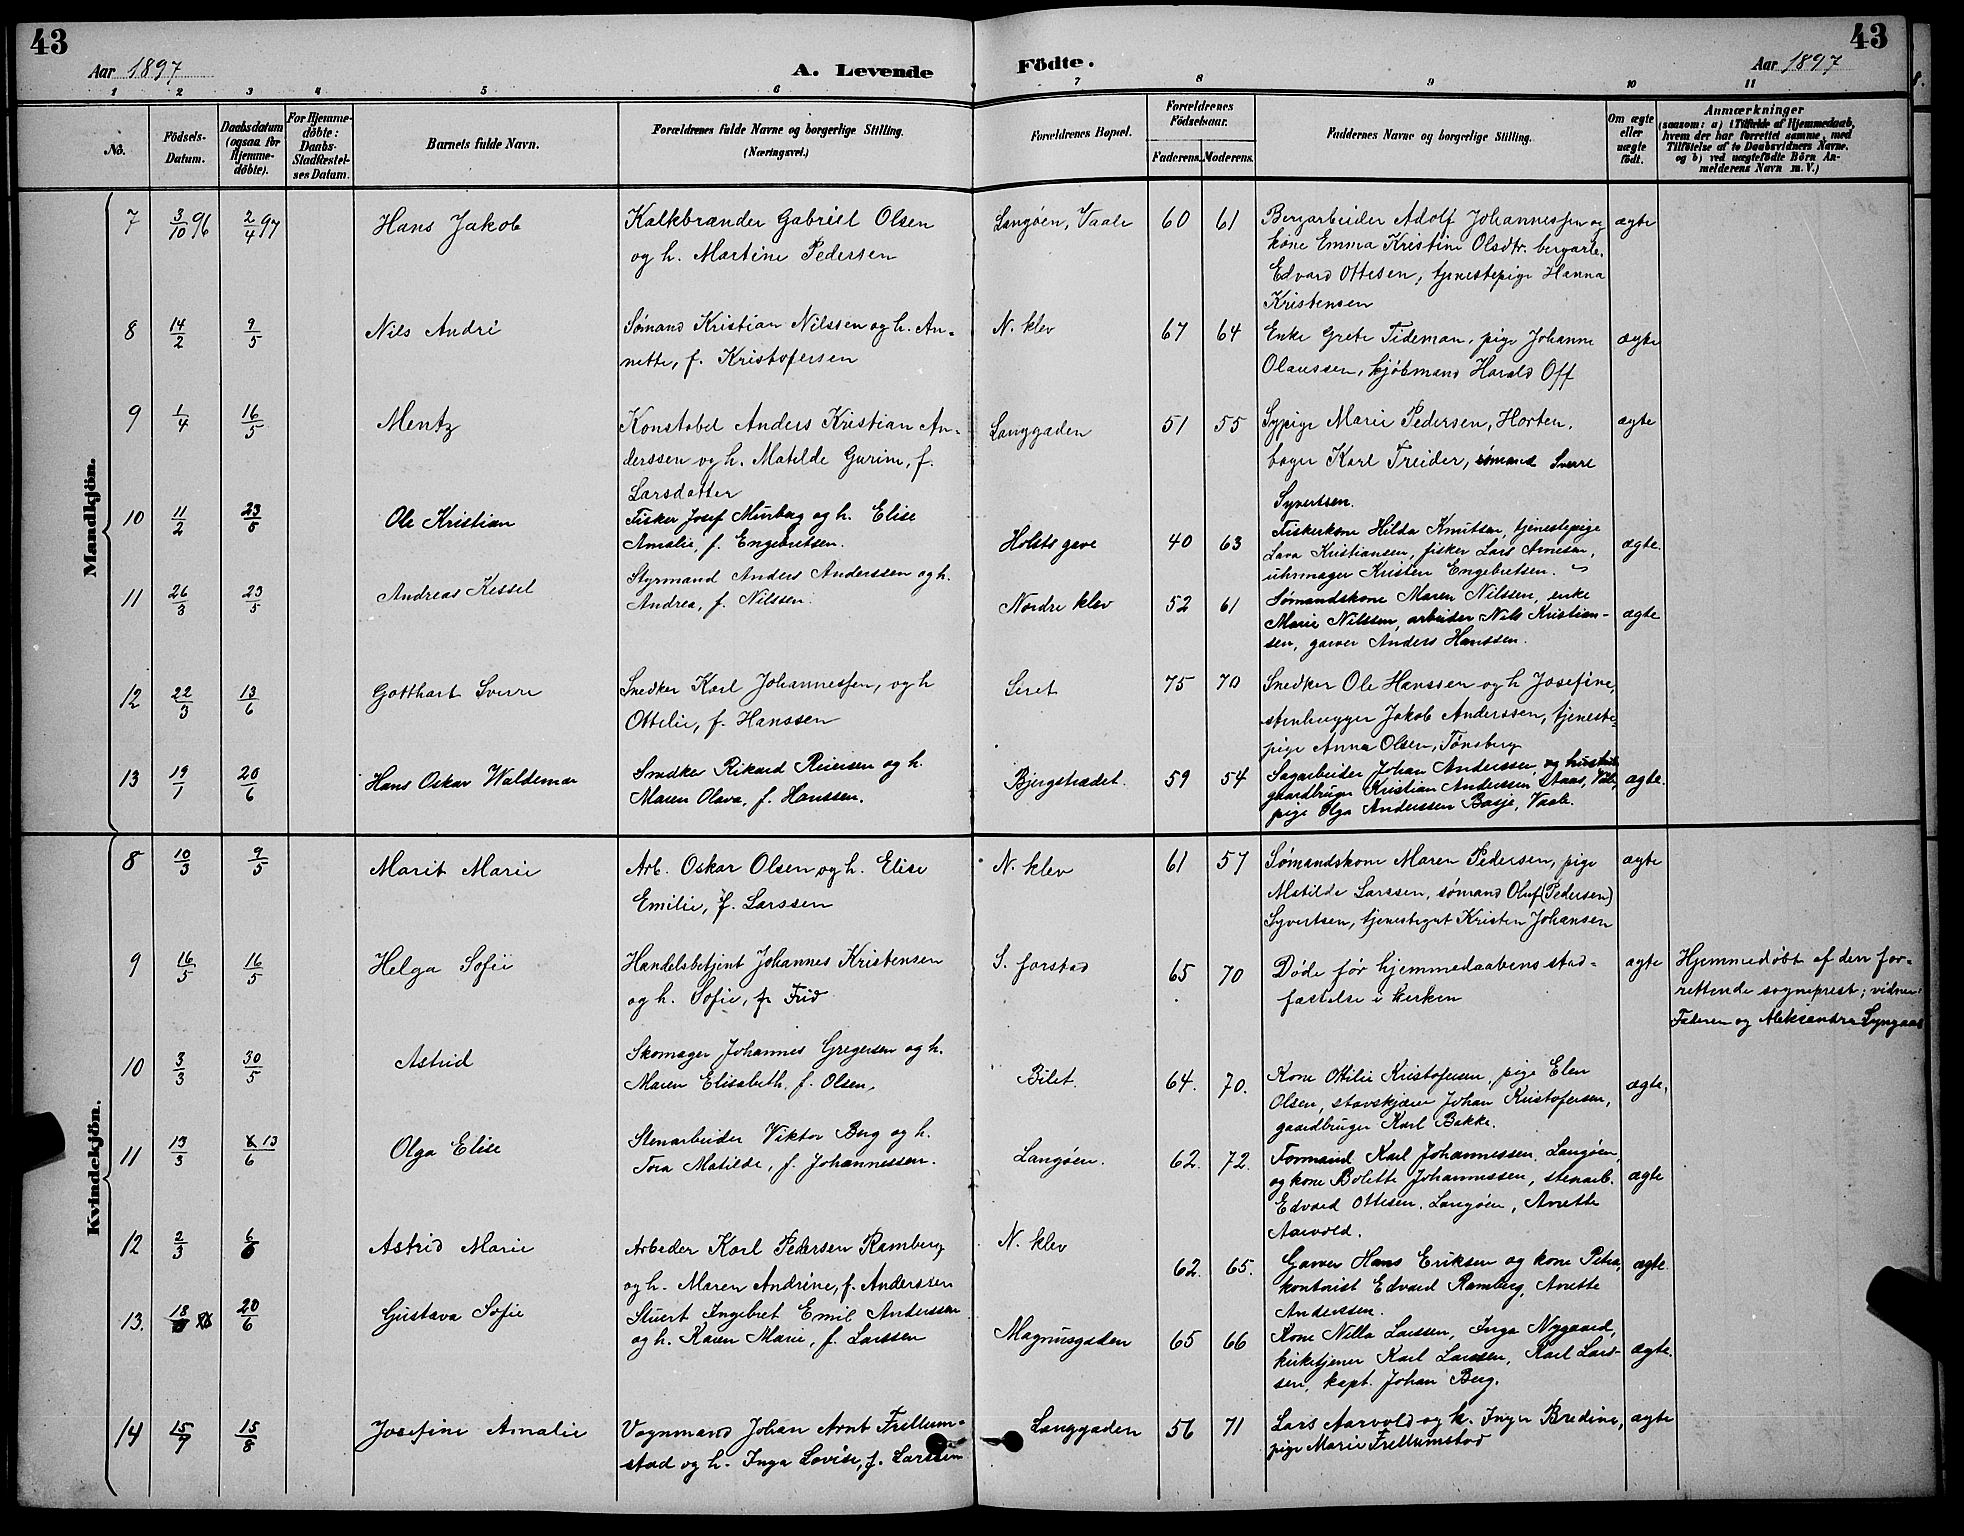 43
43
Aar 1897
A. Levende
Födte.
Aar 1897
1 2 3 4 5 6 7 8 9 10 11
No.
Födsels-
Datum.
Daabsdatum
(ogsaa for
Hjemme-
döbte).
For Hjemme-
döbte:
Daabs-
Stadfæstel-
ses Datum.
Barnets fulde Navn.
Forældrenes fulde Navne og borgerlige Stilling.
(Næringsvei.)
Forældrenes Bopæl.
Forældrenes
Födselsaar.
Faderens. Moderens.
Faddernes Navne og borgerlige Stilling.
Om ægte
eller
uægte
født.
Anmærkninger
(saasom: a) i Tilfælde af Hjemmedaab,
hvem der har forrettet samme, med
Tilföielse af to Daabsvidners Navne.
og b) ved uægtefödte Börn An-
melderens Navn m. V.)
Mandkjön.
7 3/10 96 2/4 97 Hans Jakob
Kalkbrænder Gabriel Olsen
og h. Martine Pedersen
Langøen, Vaale 60 61
Bergarbeider Adolf Johannessen og
kone Emma Kristine Olsdtr. bergarb.
Edvard Ottesen, tjenestepige Hanna
Kristensen
ægte
8 14/2 9/5 Nils Andri
Sømand Kristian Nilssen og h. An-
nette, f. Kristofersen
N. klev 67 64
Enke Grete Tideman, pige Johanne
Olaussen, kjøbmand Harald Off
ægte
9 1/4 16/5 Mentz
Konstabel Anders Kristian An-
derssen og h. Matilde Gurine, f.
Larsdatter
Langgaden 51 55
Sypige Marie Pedersen, Horten,
bager Karl Treider, sømand Sverre
Syvertsen.
ægte
10 11/2 23/5 Ole Kristian
Fisker Josef Minberg og h. Elise
Amalie, f. Engebretsen.
Holsts gave 40 63
Fiskerkone Hilda Knutsen, tjenestepige
Lava Kristiansen, fisker Lars Arnesen,
uhrmager Kristen Engebretsen.
ægte.
11 26/3 23/5 Andreas Kessel
Styrmand Anders Anderssen og h.
Andrea, f. Nilssen.
Nordre klev 52 61
Sømandskone Maren Nilssen, enke
Marie Nilssen, arbeider Nils Kristian-
sen, garver Anders Hanssen.
ægte
12 22/3 13/6 Gotthart Sverre
Snedker Karl Johannessen, og h
Ottilie, f. Hanssen
Leret 75 70
Snedker Ole Hanssen og h Josefine,
stenhugger Jakob Anderssen, tjeneste-
pige Anna Olsen, Tønsberg
13 19/1 20/6 Hans Oskar Waldemar
Snedker Rikard Reiersen og h.
Maren Olava, f. Hanssen.
Bjergstrædet. 59 54
Sagarbeider Johan Anderssen og hustru
gaardbruger Kristian Anderssen Staas, Vaale,
pige Olga Anderssen Basje, Vaale.
ægte.
Kvindekjön.
8 10/3 9/5 Marit Marie
Arb. Oskar Olsen og h. Elise
Emilie, f. Larssen
N. klev 61 57
Sømandskone Maren Pedersen, pige
Matilde Larssen, sømand Oluf (Pedersen)
Syvertsen, tjenestegut Kristen Johansen
ægte
9 16/5 16/5 Helga Sofie
Handelsbetjent Johannes Kristensen
og h. Sofie, f. Frid
S. forstad 65 70
Døde før hjemmedaabens stad-
fæstelse i kirken
ægte
Hjemmedøbt af den for-
rettende sogneprest; vidner:
Faderen og Aleksandra Lyngaas
10 3/3 30/5 Astrid
Skomager Johannes Gregersen og h.
Maren Elisabeth, f. Olsen,
Bilet. 64. 70.
Kone Ottilie Kristofersen, pige Elen
Olsen, stavskjærer Johan Kristofersen,
gaardbruger Karl Bakke.
ægte,
11 13/3 13/6 Olga Elise
Stenarbeider Viktor Berg og h.
Tora Matilde, f. Johannessen.
Langøen. 62. 72.
Formand Karl Johannessen, Langøen,
og kone Bolette Johannessen, stenarb.
Edvard Ottesen, Langøen, Anette
Aarvold.
ægte
12 2/3 6/6 Astrid Marie
Arbeder Karl Pedersen Ramberg
og h. Maren Andrine, f. Anderssen
N. klev 62. 65.
Garver Hans Eriksen og kone Petra,
kontorist Edvard Ramberg, Anette
Anderssen.
ægte.
13. 18 20/6 Gustava Sofie
Stuert Ingebret Emil Anderssen
og h. Karen Marie, f. Larssen
Magnusgaden 65 66
Kone Nilla Larssen, Inga Nygaard,
kirketjener Karl Larssen, Karl Lars-
sen, kapt. Johan Berg.
ægte.
14 15/7 15/8 Josefine Amalie
Vognmand Johan Arnt Frellum-
stad og h. Inga Lovise, f. Larssen
Langgaden 56 71
Lars Aarvold og h. Inger Bredine,
pige Marie Frellumstad
ægte